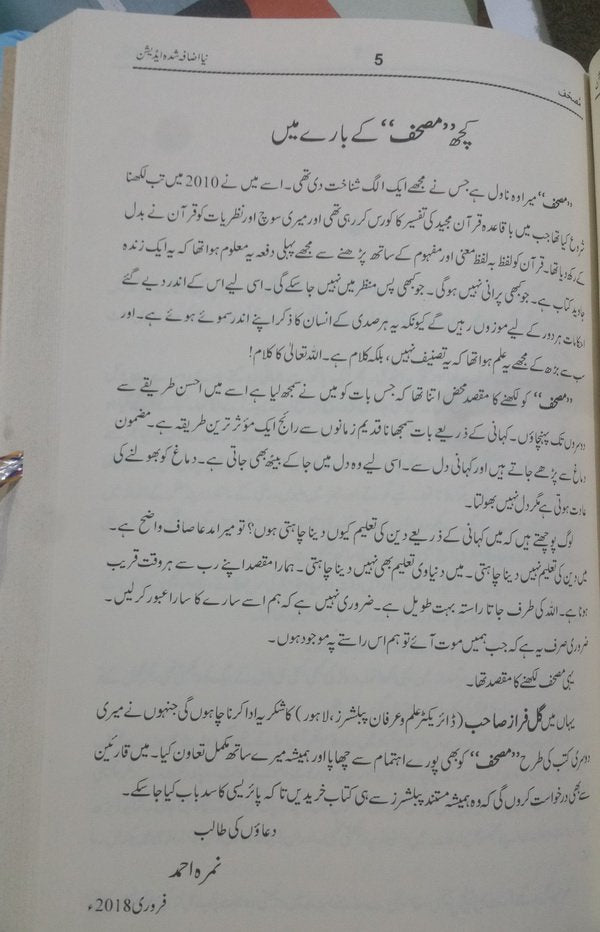 مُصحف 5 نیا اضافہ شدہ ایڈیشن
کچھ ”مصحف“ کے بارے میں
”مصحف“ میرا وہ ناول ہے جس نے مجھے ایک الگ شناخت دی تھی۔ اسے میں نے 2010 میں تب لکھنا
شروع کیا تھا جب میں باقاعدہ قرآن مجید کی تفسیر کا کورس کر رہی تھی اور میری سوچ اور نظریات کو قرآن نے بدل
کے رکھ دیا تھا۔ قرآن کو لفظ بہ لفظ معنی اور مفہوم کے ساتھ پڑھنے سے مجھے پہلی دفعہ یہ معلوم ہوا تھا کہ یہ ایک زندہ
جاوید کتاب ہے۔ جو کبھی پرانی نہیں ہوگی۔ جو کبھی پس منظر میں نہیں جا سکے گی۔ اسی لیے اس کے اندر دیے گئے
احکامات ہر دور کے لیے موزوں رہیں گے کیونکہ یہ ہر صدی کے انسان کا ذکر اپنے اندر سموئے ہوئے ہے۔ اور
سب سے بڑھ کے مجھے یہ علم ہوا تھا کہ یہ تصنیف نہیں، بلکہ کلام ہے۔ اللہ تعالیٰ کا کلام!
”مصحف“ کو لکھنے کا مقصد محض اتنا تھا کہ جس بات کو میں نے سمجھ لیا ہے اسے میں احسن طریقے سے
دوسروں تک پہنچاؤں۔ کہانی کے ذریعے بات سمجھانا قدیم زمانوں سے رائج ایک مؤثر ترین طریقہ ہے۔ مضمون
دماغ سے پڑھے جاتے ہیں اور کہانی دل سے۔ اسی لیے وہ دل میں جا کے بیٹھ بھی جاتی ہے۔ دماغ کو بھولنے کی
عادت ہوتی ہے مگر دل نہیں بھولتا۔
لوگ پوچھتے ہیں کہ میں کہانی کے ذریعے دین کی تعلیم کیوں دینا چاہتی ہوں؟ تو میرا مدعا صاف واضح ہے۔
میں دین کی تعلیم نہیں دینا چاہتی۔ میں دنیاوی تعلیم بھی نہیں دینا چاہتی۔ ہمارا مقصد اپنے رب سے ہر وقت قریب
ہونا ہے۔ اللہ کی طرف جاتا راستہ بہت طویل ہے۔ ضروری نہیں ہے کہ ہم اسے سارے کا سارا عبور کر لیں۔
ضروری صرف یہ ہے کہ جب ہمیں موت آئے تو ہم اس راستے پہ موجود ہوں۔
یہی مصحف لکھنے کا مقصد تھا۔
یہاں میں گل فراز صاحب (ڈائریکٹر علم و عرفان پبلشرز، لاہور) کا شکریہ ادا کرنا چاہوں گی جنہوں نے میری
دوسری کتب کی طرح ”مصحف“ کو بھی پورے اہتمام سے چھاپا اور ہمیشہ میرے ساتھ مکمل تعاون کیا۔ میں قارئین
سے بھی درخواست کروں گی کہ وہ ہمیشہ مستند پبلشرز سے ہی کتاب خریدیں تا کہ پائریسی کا سدباب کیا جا سکے۔
دعاؤں کی طالب
نمرہ احمد
فروری 2018ء